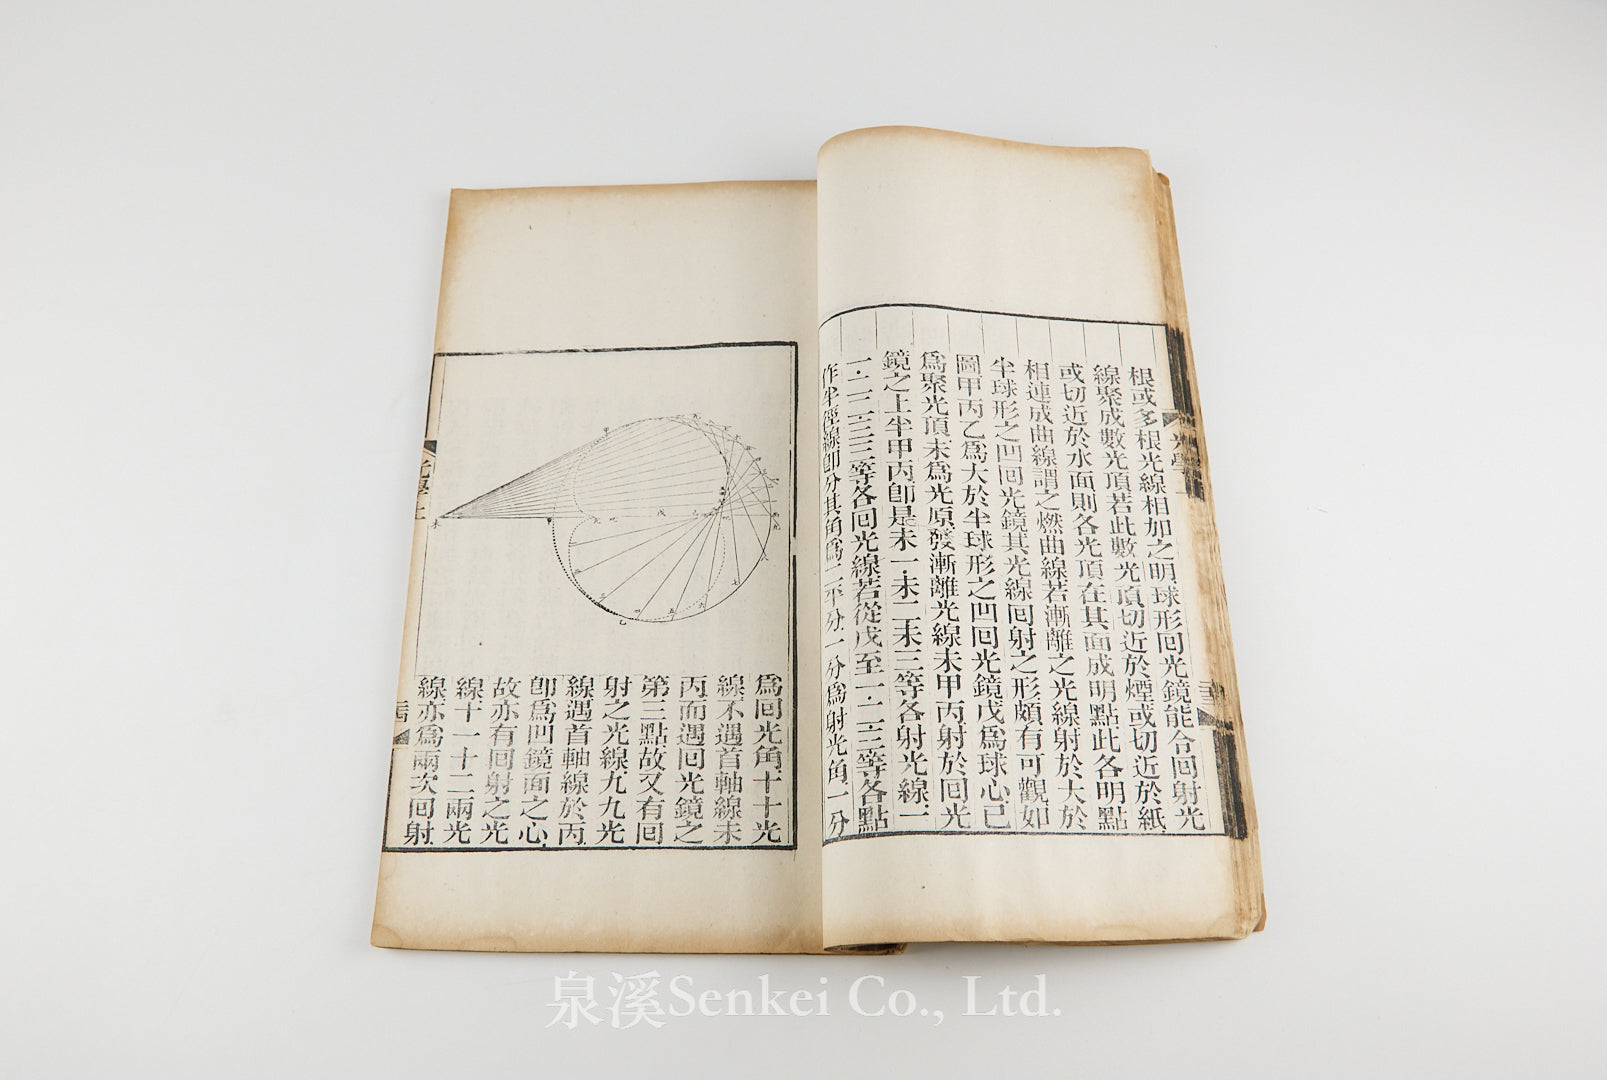 根或多根光線相加之明球形回光鏡能合回射光
線聚成數光頂若此數光頂切近於煙或切近於紙
或切近於水面則各光頂在其面成明點此各明點
相連成曲線謂之燃曲線若漸離之光線射於大於
半球形之凹回光鏡其光線回射之形頗有可觀如
圖甲丙乙爲大於半球形之凹回光鏡戊爲球心己
爲聚光頂未爲光原發漸離光線未甲丙射於回光
鏡之上半甲丙卽是未一未二未三等各射光線一
一二二三三等各回光線若從戊至一二三等各點
作半徑線卽分其角爲二平分一分爲射光角一分
光學上
爲回光角十十光
線不遇首軸線未
丙而遇回光鏡之
第三點故又有回
射之光線九九光
線遇首軸線於丙
卽爲凹鏡面之心
故亦有回射之光
線十一十二兩光
線亦爲兩次回射
光學上
泉溪Senkei Co., Ltd.